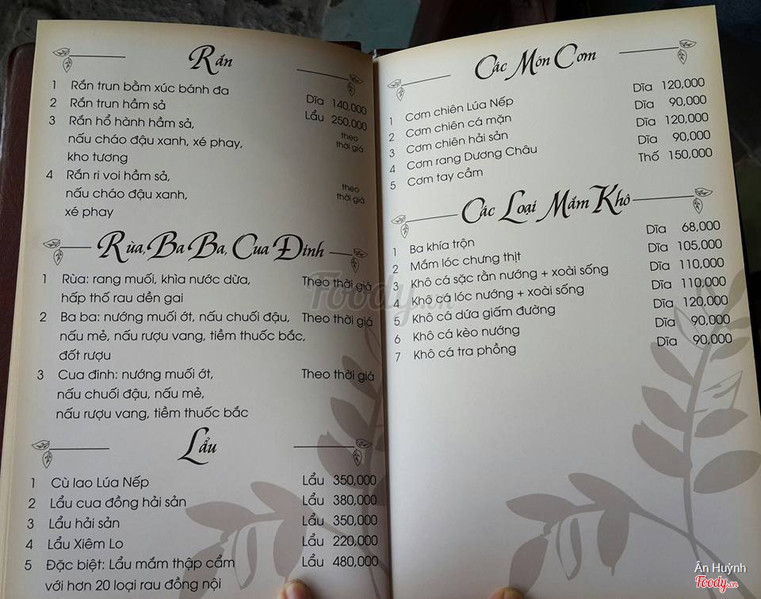 Rắn
1 Rắn trun bằm xúc bánh đa
2 Rắn trun hầm sả Dĩa 140,000
3 Rắn hổ hành hầm sả, Lẩu 250,000
nấu cháo đậu xanh, xé phay, theo
kho tương thời giá
4 Rắn ri voi hầm sả,
nấu cháo đậu xanh, theo
xé phay thời giá
Rùa, Ba Ba, Cua Đinh
1 Rùa: rang muối, khìa nước dừa, Theo thời giá
hấp thố rau dền gai
2 Ba ba: nướng muối ớt, nấu chuối đậu, Theo thời giá
nấu mẻ, nấu rượu vang, tiềm thuốc bắc,
đốt rượu
3 Cua đinh: nướng muối ớt, Theo thời giá
nấu chuối đậu, nấu mẻ,
nấu rượu vang, tiềm thuốc bắc
Lẩu
1 Cù lao Lúa Nếp Lẩu 350,000
2 Lẩu cua đồng hải sản Lẩu 380,000
3 Lẩu hải sản Lẩu 350,000
4 Lẩu Xiêm Lo Lẩu 220,000
5 Đặc biệt: Lẩu mắm thập cẩm Lẩu 480,000
với hơn 20 loại rau đồng nội
Các Món Cơm
1 Cơm chiên Lúa Nếp Dĩa 120,000
2 Cơm chiên cá mặn Dĩa 90,000
3 Cơm chiên hải sản Dĩa 120,000
4 Cơm rang Dương Châu Dĩa 90,000
5 Cơm tay cầm Thố 150,000
Các Loại Mắm Khô
1 Ba khía trộn Dĩa 68,000
2 Mắm lóc chưng thịt Dĩa 105,000
3 Khô cá sặc rằn nướng + xoài sống Dĩa 110,000
4 Khô cá lóc nướng + xoài sống Dĩa 110,000
5 Khô cá dứa giấm đường Dĩa 120,000
6 Khô cá kèo nướng Dĩa 90,000
7 Khô cá tra phồng Dĩa 90,000
Foody.vn
Ẩn Huỳnh
Foody.vn